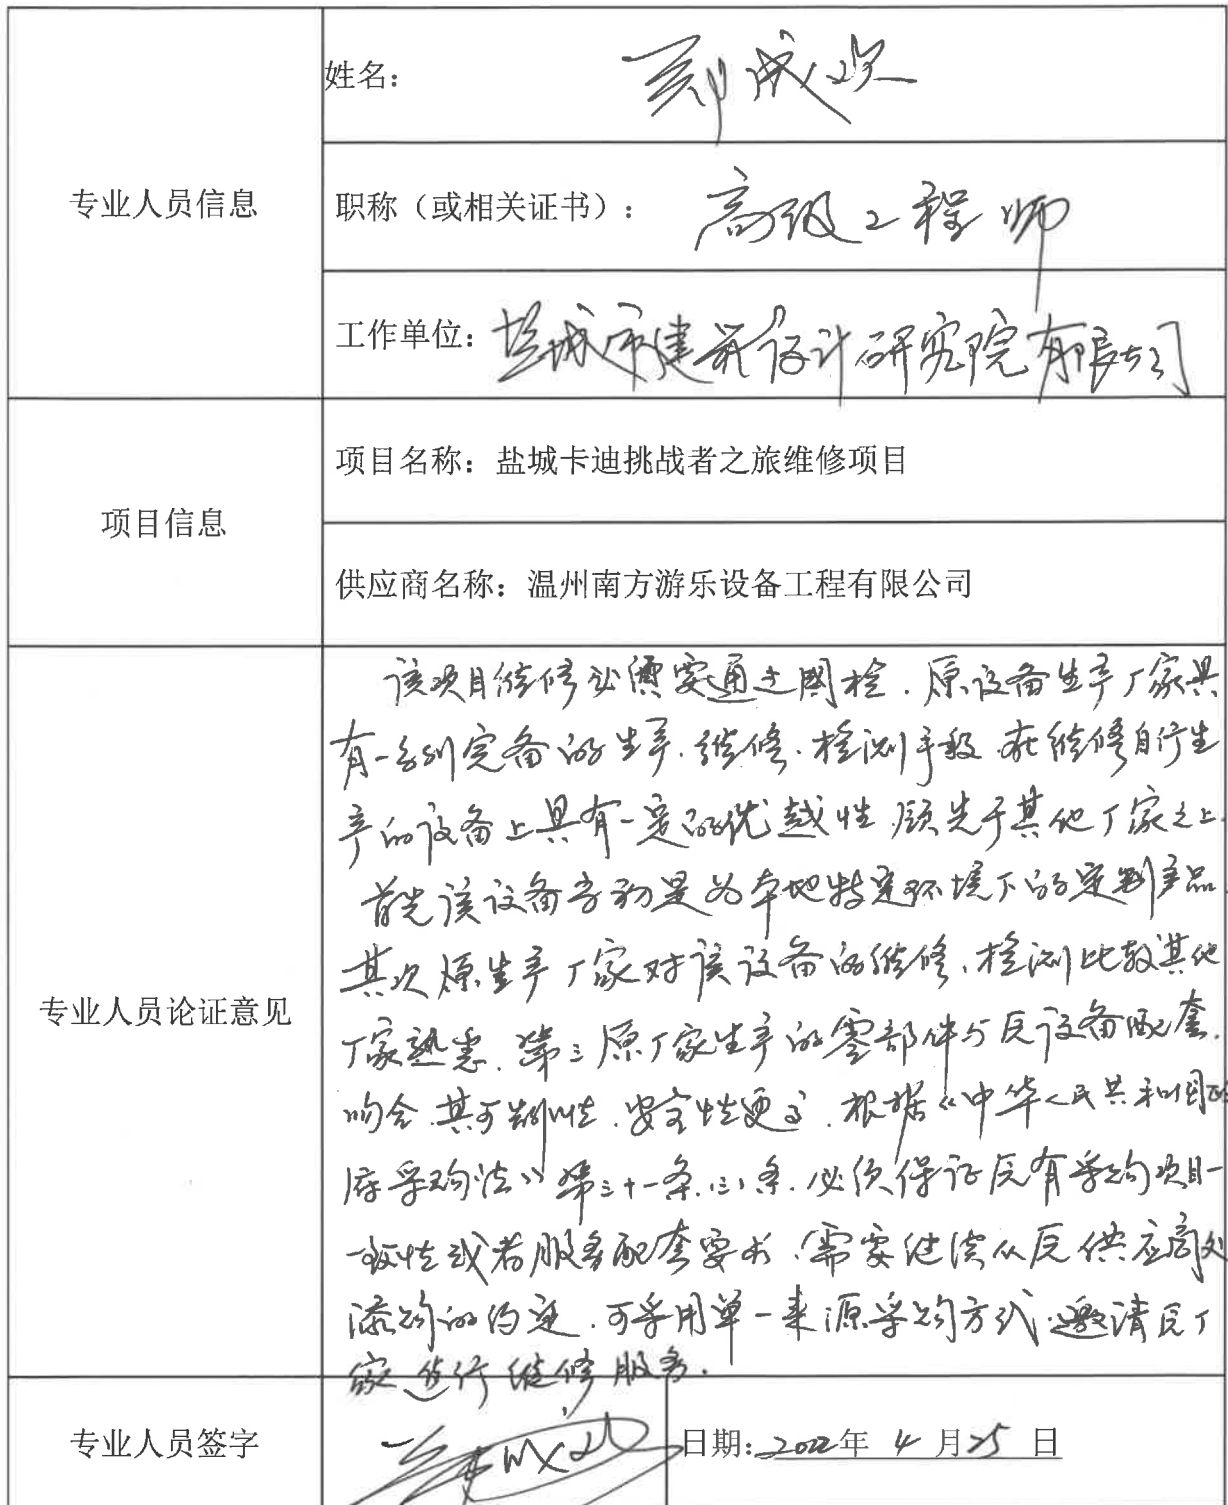 专业人员信息
姓名：
职称（或相关证书）：高级工程师
工作单位：盐城市建筑设计研究院有限公司
项目信息
项目名称：盐城卡迪挑战者之旅维修项目
供应商名称：温州南方游乐设备工程有限公司
专业人员论证意见
该项目维修必须要通过国检．原设备生产厂家具
有一系列完备的生产．维修．检测手段．在维修自行生
产的设备上具有一定的优越性．领先于其他厂家之上．
首先该设备当初是为本地特定环境下的定制产品．
其次原生产厂家对该设备的维修．检测比较其他
厂家熟悉．第三原厂家生产的零部件与原设备配套．
吻合．其可靠性．安全性更高．根据《中华人民共和国政
府采购法》第三十一条（三）条．必须保证原有采购项目一
致性或者服务配套要求．需要继续从原供应商处
添购的约定．可采用单一来源采购方式．邀请原厂
家进行维修服务．
专业人员签字
日期：2022年 4 月 25 日